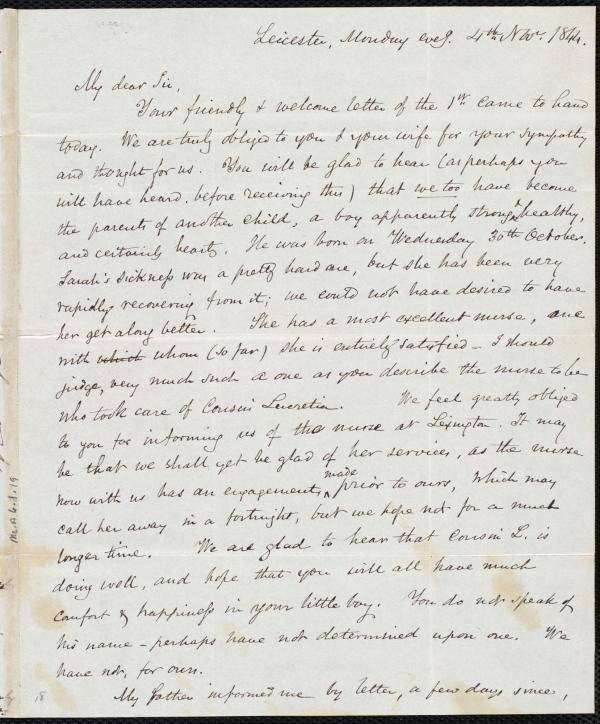 Leicester, Monday eveg. 4th Nov. 1844.
My dear Sir,
Your friendly & welcome letter of the 1st came to hand
today. We are truly obliged to you & your wife for your sympathy
and thought for us. You will be glad to hear (as perhaps you
will have heard, before receiving this) that we too have become
the parents of another child, a boy apparently strong & healthy,
and certainly hearty. He was born on Wednesday 30th October.
Sarah's sickness was a pretty hard one, but she has been very
rapidly recovering from it; we could not have desired to have
her get along better. She has a most excellent nurse, one
with which whom (so far) she is entirely satisfied - I should
judge, very much such a one as you describe the nurse to be
who took care of Cousin Lucretia. We feel greatly obliged
to you for informing us of the nurse at Lexington. It may
be that we shall yet be glad of her services, as the nurse
now with us has an engagement, made prior to ours, which may
call her away in a fortnight, but we hope not for a much
longer time. We are glad to hear that Cousin L. is
doing well, and hope that you will all have much
comfort & happiness in your little boy. You do not speak of
his name - perhaps have not determined upon one. We
have not, for ours.
My father informed me by letter, a few days since,
18